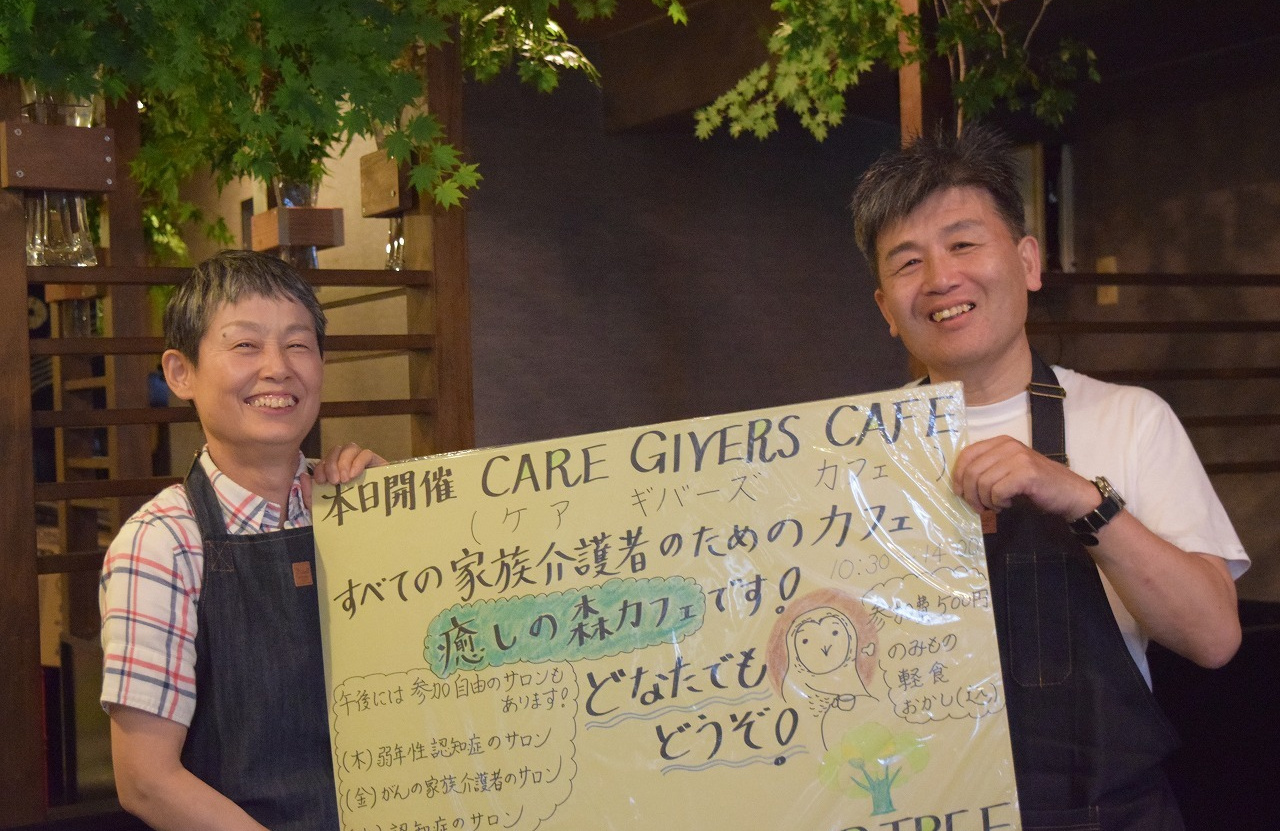 本日開催 CARE GIVERS CAFE
(ケア ギバーズ カフェ)
すべての家族介護者のためのカフェ
癒しの森カフェです!
10:30 14:00
参加費500円
のみもの
軽食
おかし(込)
どなたでも
どうぞ!
午後には参加自由のサロンも
あります!
(木)弱年性認知症のサロン
(金)がんの家族介護者のサロン
認知症のサロン
TREE